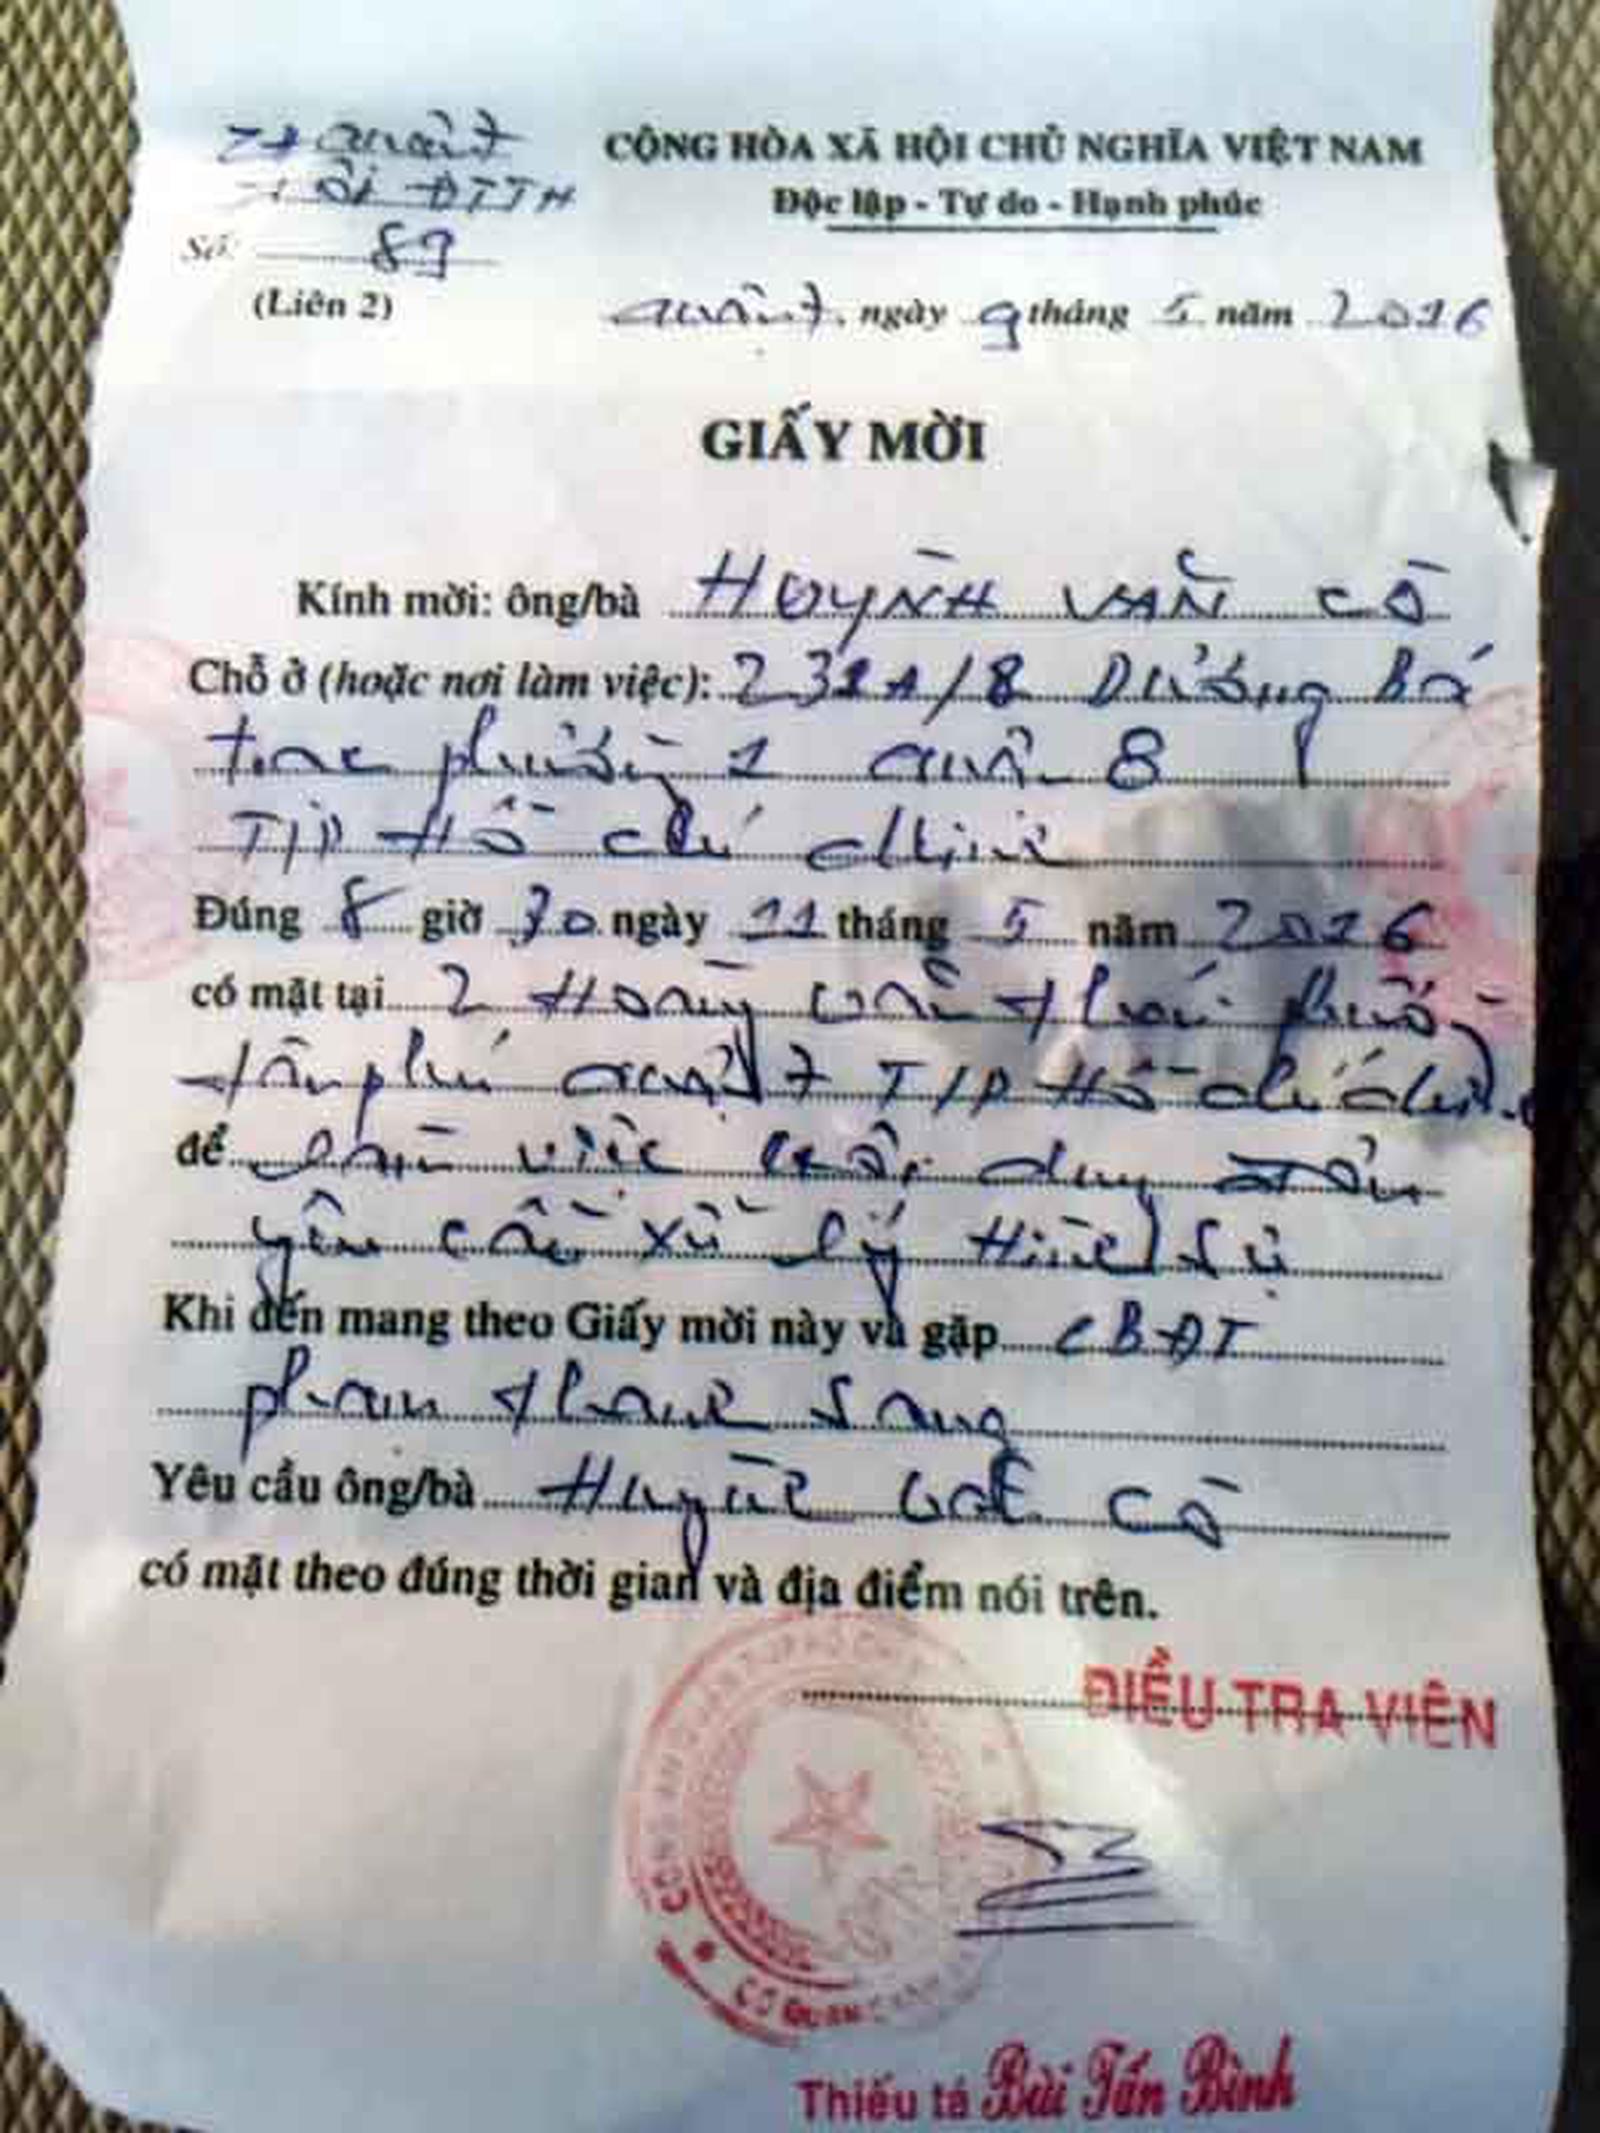 CA Quận 7
Đội ĐTTH
CỘNG HÒA XÃ HỘI CHỦ NGHĨA VIỆT NAM
Độc lập - Tự do - Hạnh phúc
Số: 89
(Liên 2)
Quận 7, ngày 9 tháng 5 năm 2016
GIẤY MỜI
Kính mời: ông/bà HUỲNH VĂN CÒ
Chỗ ở (hoặc nơi làm việc): 231A/8 Dương Bá
Trạc phường 1 Quận 8
T/P Hồ Chí Minh
Đúng 8 giờ 30 ngày 11 tháng 5 năm 2016
có mặt tại 2 Hoàng Văn Thái phường
Tân Phú Quận 7 T/P Hồ Chí Minh
để làm việc nội dung đơn
yêu cầu xử lý Hình sự
Khi đến mang theo Giấy mời này và gặp CBĐT
Phạm Thanh Sang
Yêu cầu ông/bà Huỳnh Văn Cò
có mặt theo đúng thời gian và địa điểm nói trên.
ĐIỀU TRA VIÊN
CƠ QUAN
Thiếu tá Bùi Tấn Bình